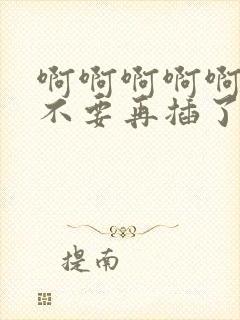 啊啊啊啊啊
不要再插了
提南